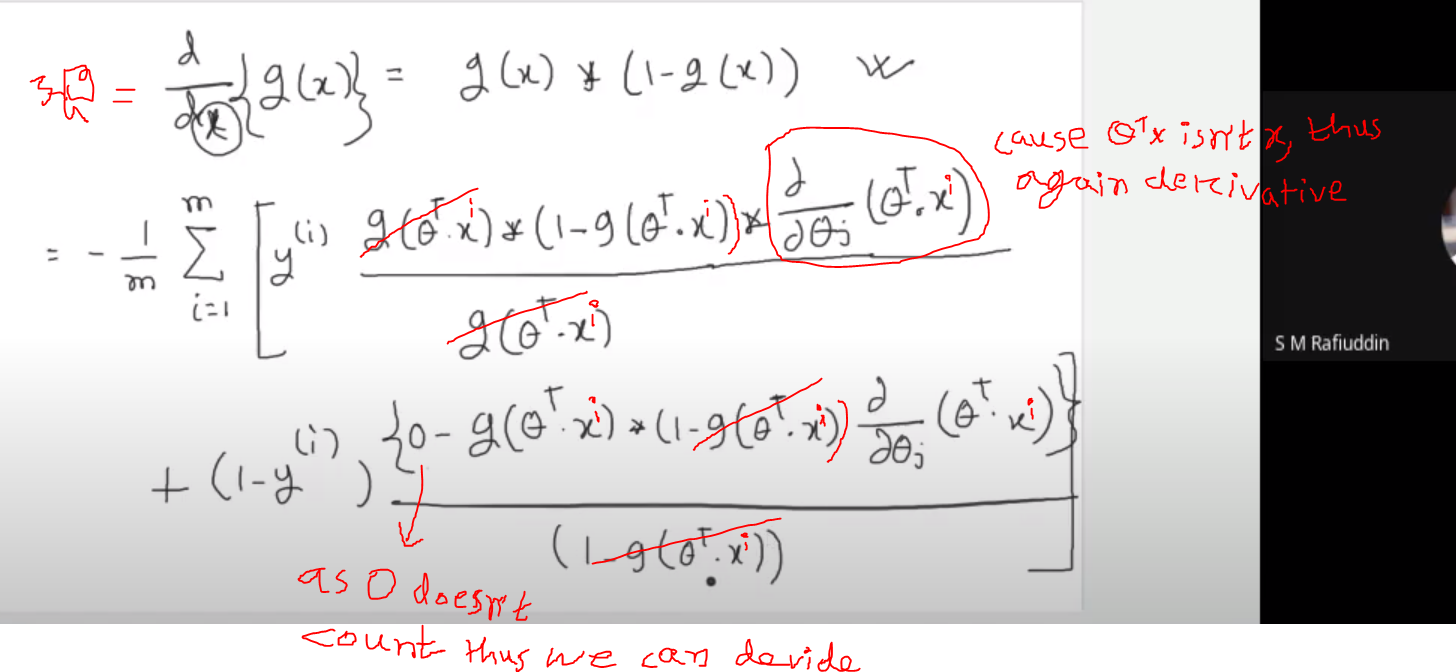 = d/dx {g(x)} = g(x) * (1-g(x))
cause θᵀx isn't x, thus
again derivative
= - 1/m Σ_{i=1}^{m} [ y⁽ⁱ⁾ g(θᵀ.xⁱ) * (1-g(θᵀ.xⁱ)) * ∂/∂θj (θᵀ.xⁱ)
g(θᵀ.xⁱ)
S M Rafiuddin
+ (1-y⁽ⁱ⁾) {0 - g(θᵀ.xⁱ) * (1-g(θᵀ.xⁱ)) ∂/∂θj (θᵀ.xⁱ)} ]
(1-g(θᵀ.xⁱ))
as 0 doesn't
count thus we can devide